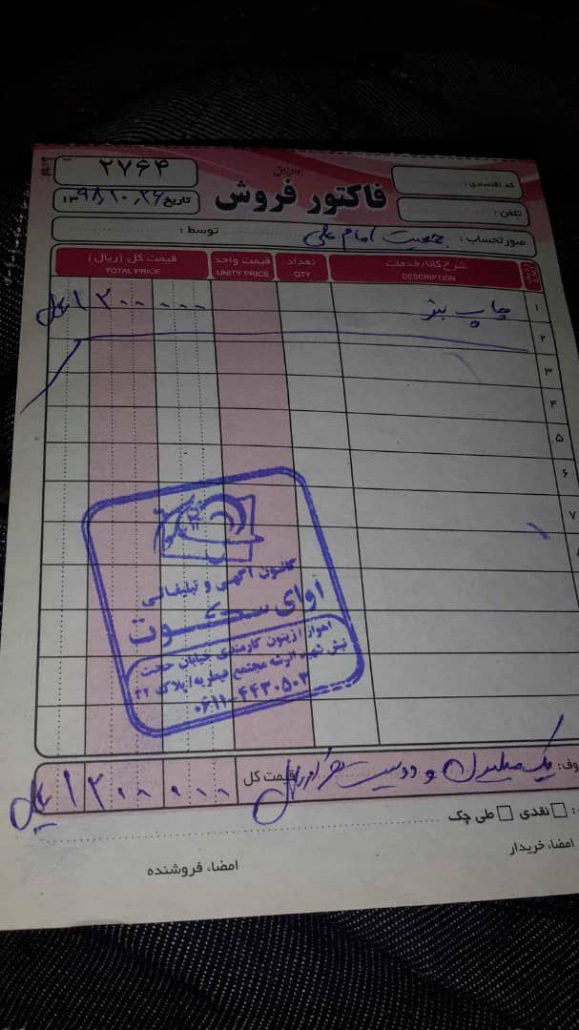 ۲۷۶۴
فاکتور فروش
کد اقتصادی :
تاریخ ۱۳۹۸/۱۰/۲۶
تلفن :
صورتحساب : جمعیت امام علی توسط :
ردیف شرح کالا/خدمات تعداد قیمت واحد قیمت کل (ریال)
DESCRIPTION QTY UNITY PRICE TOTAL PRICE
۱ چاپ بنر ۱۲۰۰۰۰۰ ریال
۲
۳
۴
۵
۶
۷
۸
کانون آگهی و تبلیغاتی
آوای سکوت
اهواز زیتون کارمندی خیابان حجت
پلاک ۲۲
وف: یک میلیون و دویست هزار ریال قیمت کل ۱۲۰۰۰۰۰ ریال
نقدی طی چک
امضاء خریدار
امضاء فروشنده